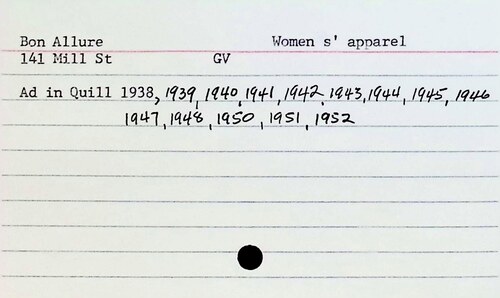 Bon Allure Women s' apparel
141 Mill St GV
Ad in Quill 1938, 1939, 1940, 1941, 1942, 1943, 1944, 1945, 1946
1947, 1948, 1950, 1951, 1952